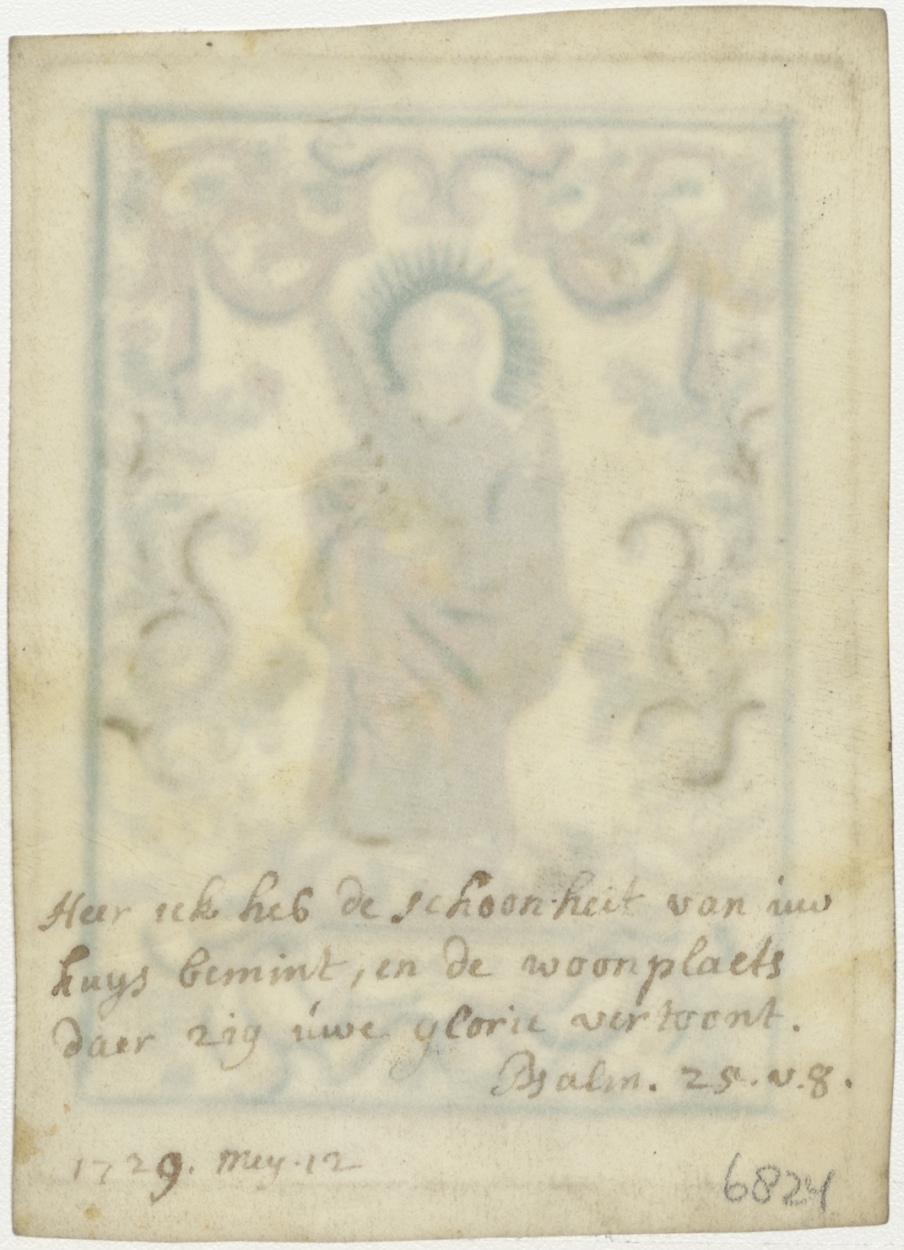 Heer iek heb de schoonheit van úw
huys bemint, en de woonplaets
daer zig úwe glorie vertoont.
Psalm. 25. v. 8.
1729. Mey. 12
6824